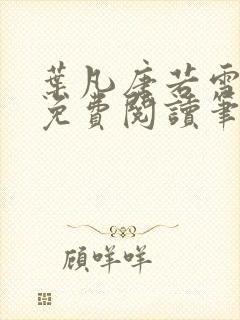 葉凡唐若雪
免費閱讀筆
顧咩咩